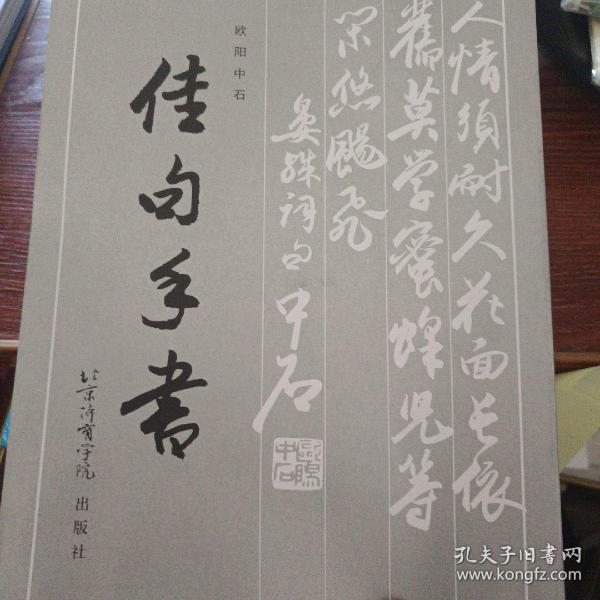 人情須耐久花面長依
舊莫学蜜蜂児等
閑悠颺飛
晏殊词句中石
欧阳中石
欧阳中石
佳句手書
北京体育学院出版社
孔夫子旧书网
www.kongfz.com